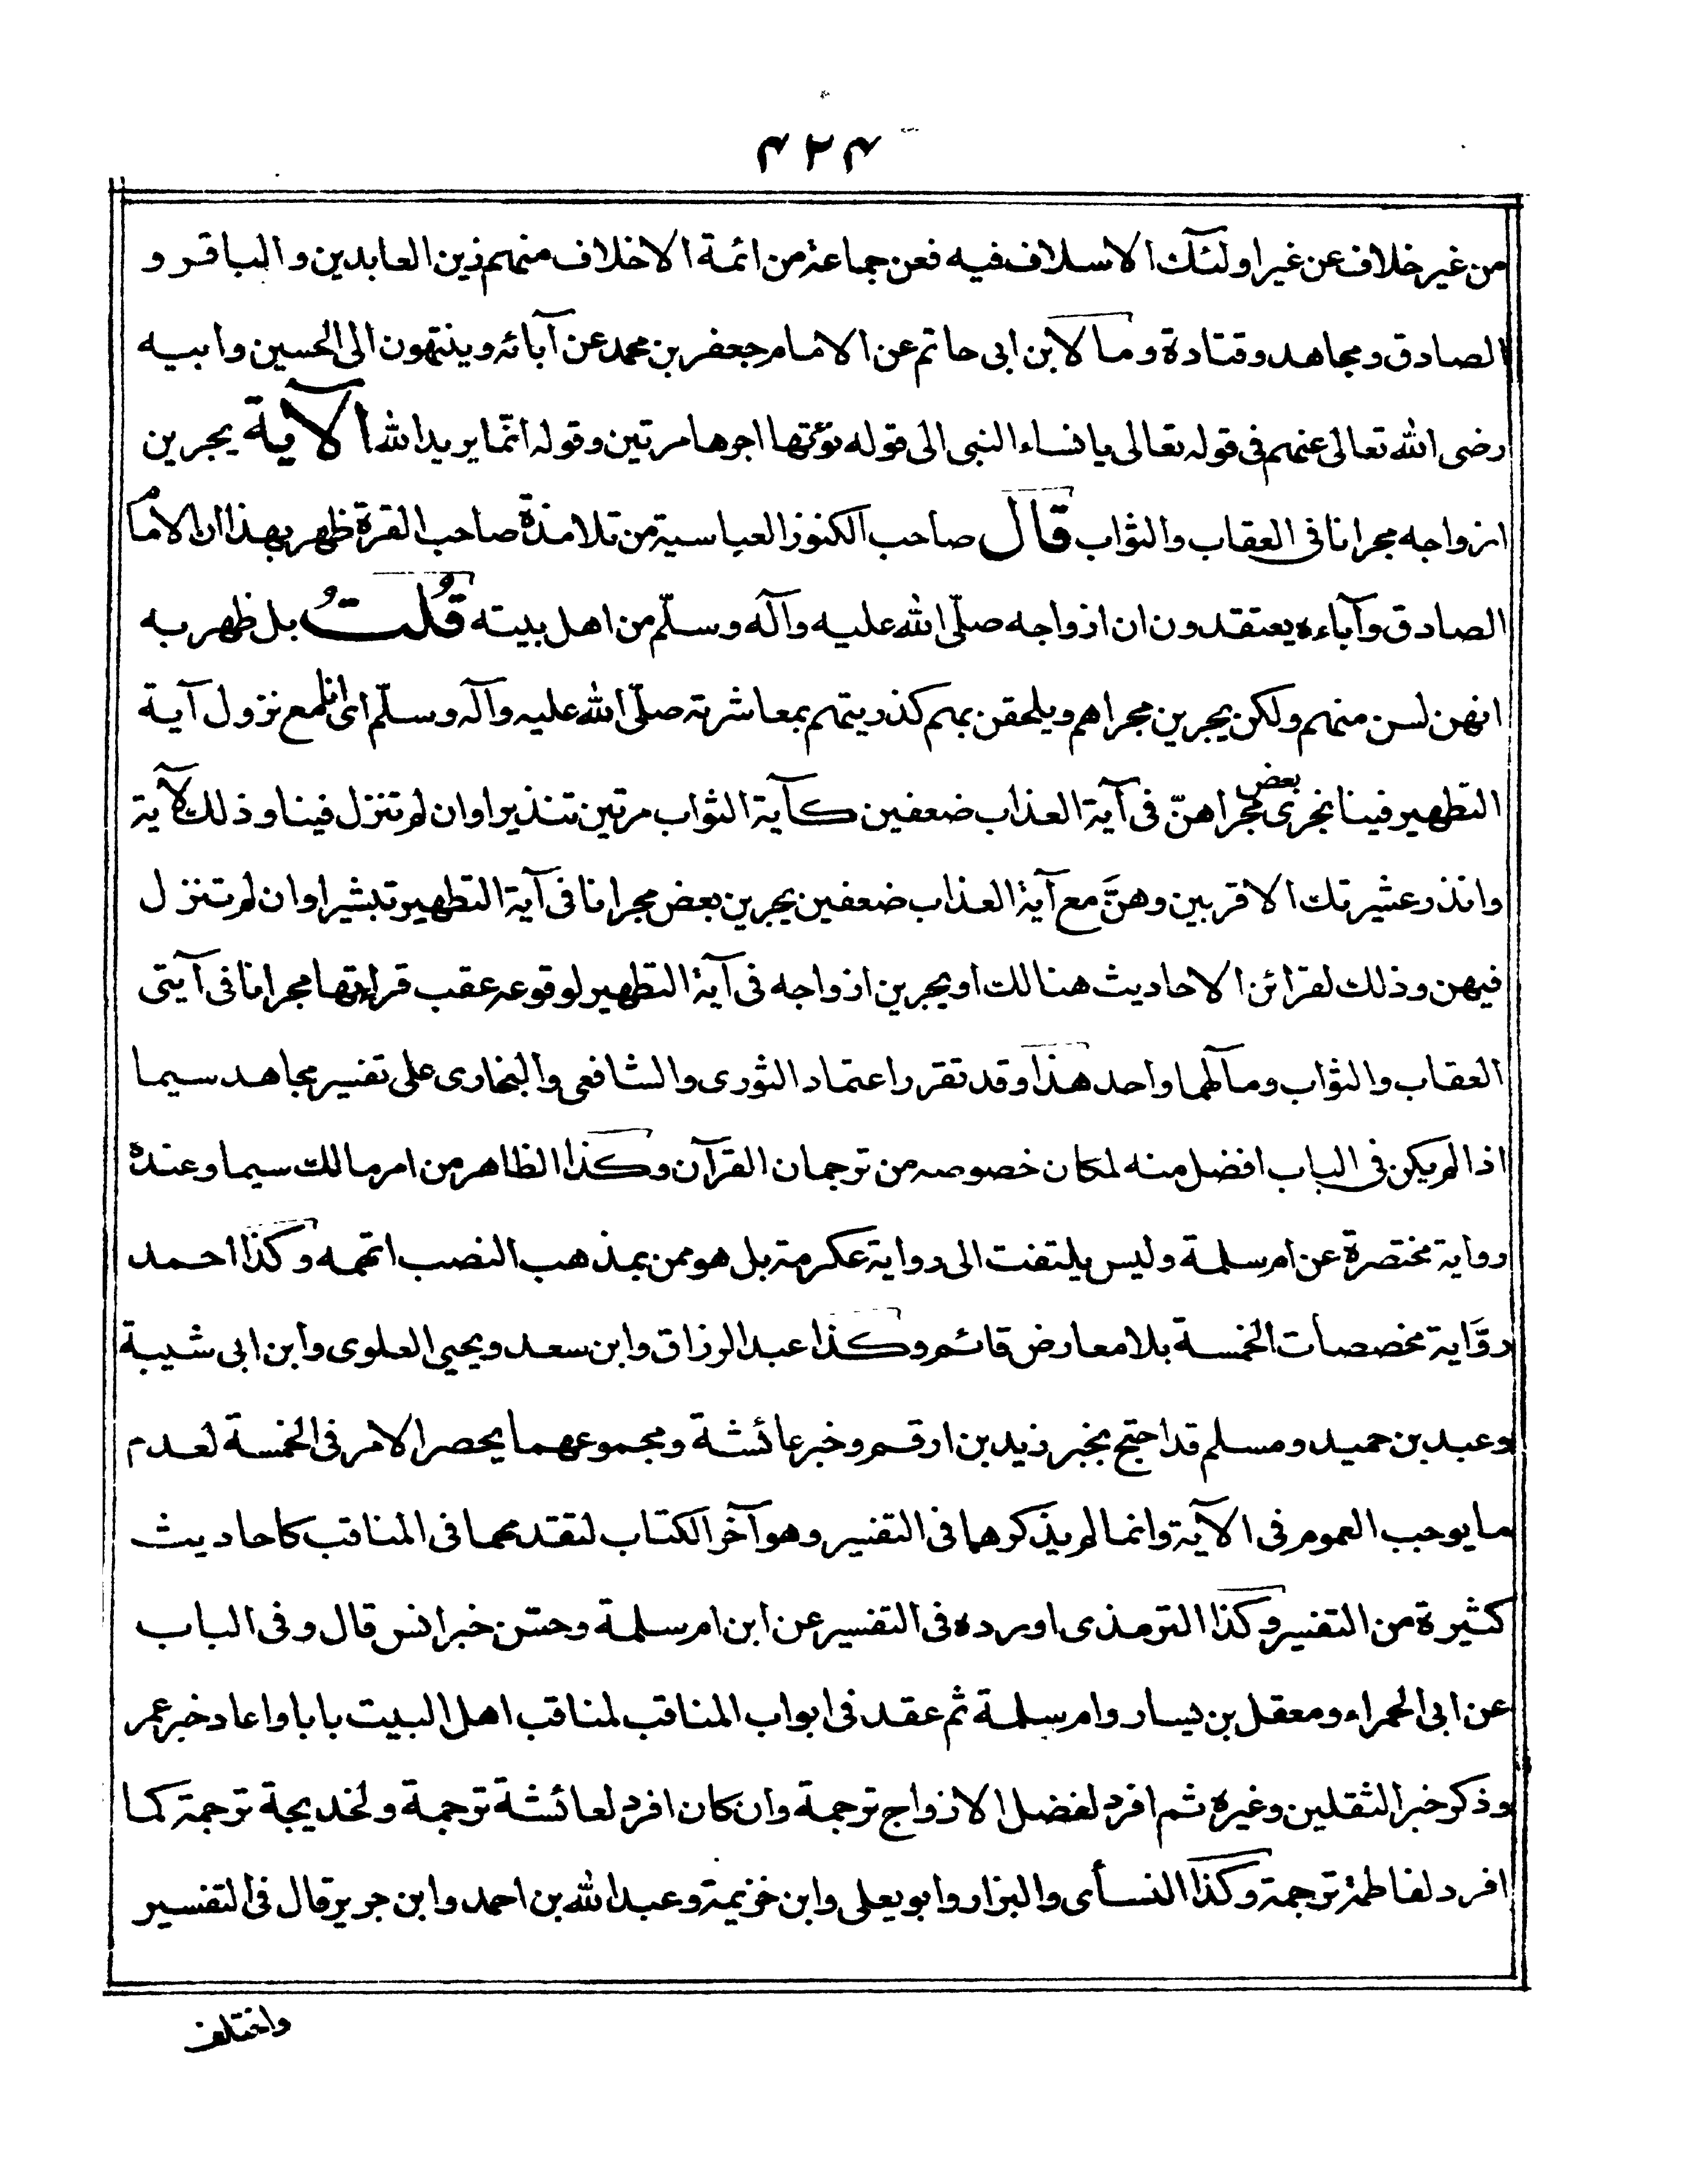 ۴۲۴
من غير خلاف عن غير اولئك الاسلاف فيه فعن جماعة من ائمة الاخلاف منهم زين العابدين والباقر و
الصادق ومجاهد وقتادة وما لابن ابى حاتم عن الامام جعفر بن محمد عن آبائه وينتهون الى الحسين وابيه
رضى الله تعالى عنهم فى قوله تعالى يا نساء النبى الى قوله نؤتها اجرها مرتين وقوله انّما يريد الله الآية يجرين
ازواجه مجرانا فى العقاب والثواب قال صاحب الكنوز العباسية من تلامذة صاحب القرة ظهر بهذا ان الامام
الصادق وآباءه يعتقدون ان ازواجه صلّى الله عليه وآله وسلّم من اهل بيته قُلتُ بل ظهر به
انهن لسن منهم ولكن يجرين مجراهم ويلحقن بهم كذريتهم بمعاشرته صلّى الله عليه وآله وسلّم اى انا مع نزول آية
التطهير فينا نجرى بعض مجراهنّ فى آية العذاب ضعفين كآية الثواب مرتين تنذيرا وان لم تنزل فينا وذلك لآية
وانذر عشيرتك الاقربين وهنَّ مع آية العذاب ضعفين يجرين بعض مجرانا فى آية التطهير تبشيرا وان لم تنزل
فيهن وذلك لقرائن الاحاديث هنالك او يجرين ازواجه فى آية التطهير لوقوعه عقب قراءتها مجرانا فى آيتى
العقاب والثواب ومآلهما واحد هذا وقد تقرر اعتماد الثورى والشافعى والبخارى على تفسير مجاهد سيما
اذا لم يكن فى الباب افضل منه لمكان خصوصه من ترجمان القرآن وكذا الظاهر من امر مالك سيما وعنده
رواية مختصرة عن ام سلمة وليس يلتفت الى رواية عكرمة بل هو ممن بمذهب النصب اتهمه وكذا احمد
روَّاية مخصصات الخمسة بلا معارض قائم وكذا عبد الرزاق وابن سعد ويحيى العلوى وابن ابى شيبة
وعبد بن حميد ومسلم قد احتج بخبر زيد بن ارقم وخبر عائشة ومجموعهما يحصر الامر فى الخمسة لعدم
ما يوجب العموم فى الآية وانما لم يذكرهما فى التفسير وهو آخر الكتاب لتقدمهما فى المناقب كاحاديث
كثيرة من التفسير وكذا الترمذى اورده فى التفسير عن ابن ام سلمة وحسّن خبر انس قال وفى الباب
عن ابى الحمراء ومعقل بن يسار وام سلمة ثم عقد فى ابواب المناقب لمناقب اهل البيت بابا واعاد خبر عمر
وذكر خبر الثقلين وغيره ثم افرد لفضل الازواج ترجمة وان كان افرد لعائشة ترجمة ولخديجة ترجمة كما
افرد لفاطمة ترجمة وكذا النسأى والبزار وابو يعلى وابن خزيمة وعبد الله بن احمد وابن جرير قال فى التفسير
واختلف